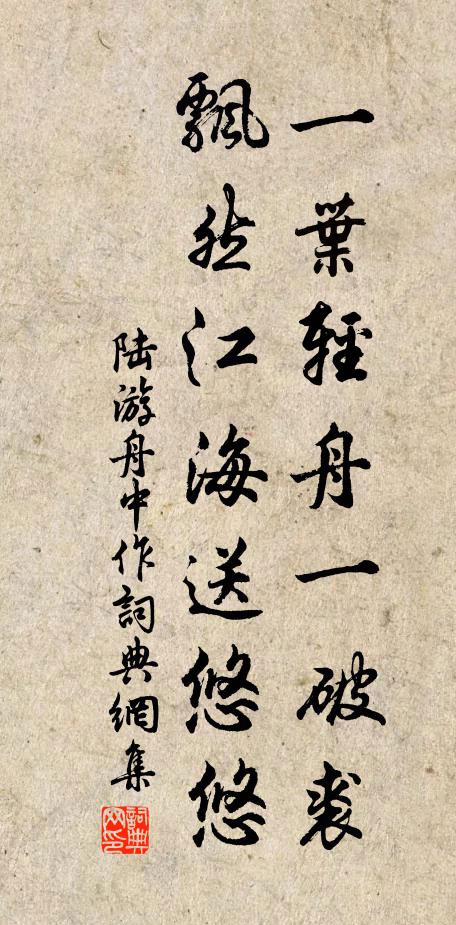 一葉輕舟一破裘
飄然江海送悠悠
陆游舟中作詞典網集
詞典网印